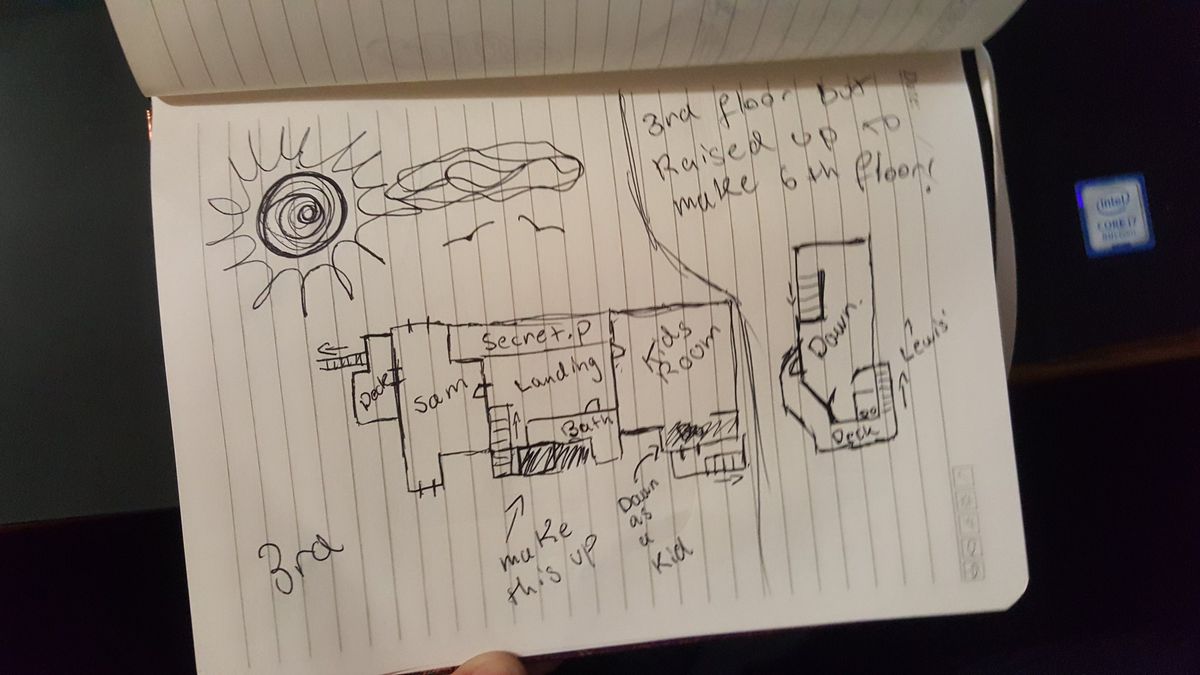 3rd floor but
Raised up to
make 6th floor!
Secret.P
Landing
Kids
Room
Sam
Deck
Bath
Dawn
Lewis.
Deck
Dawn
as
a
Kid
make
this up
3rd
intel
CORE i7